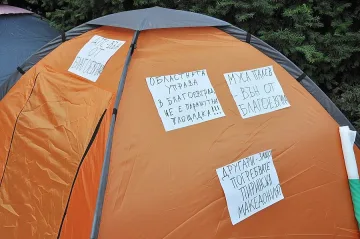 ОБЛАСТНАТА
УПРАВА
В БЛАГОЕВГРАД
НЕ Е ПАРАЛТИЙНА
ПЛОЩАДКА!!!
МУСА ПАЛЕВ
ВЪН ОТ
БЛАГОЕВГРАД
ДРУГАРИ, ЗАЩО
ПОГРЕБВАТЕ
ПИРИНСКА
МАКЕДОНИЯ